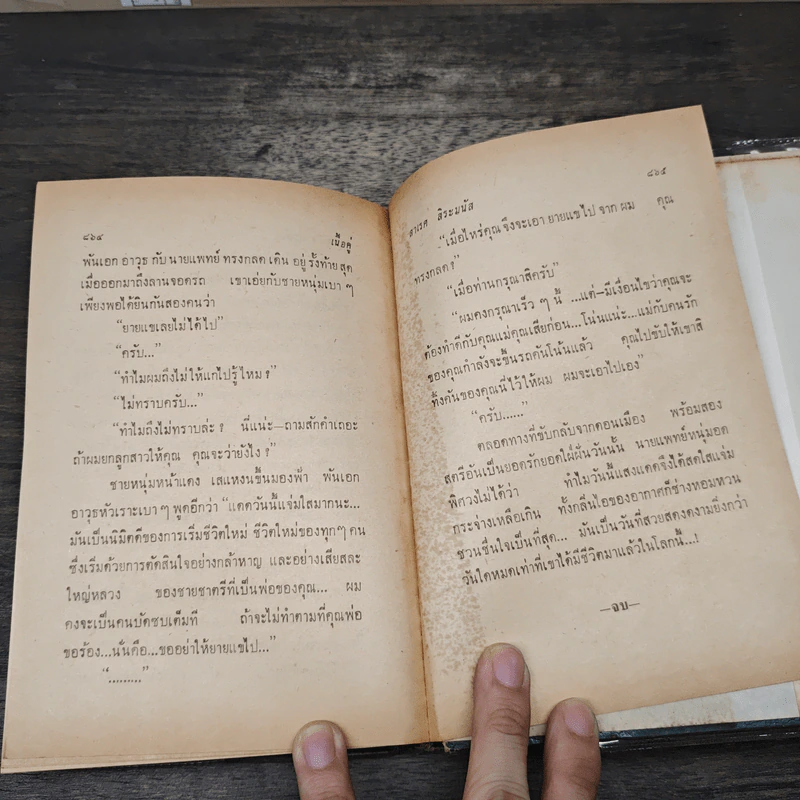 ๘๖๔
เนื้อคู่
พันเอก อาวุธ กับ นายแพทย์ ทรงกลด เดิน อยู่ รั้งท้าย สุด
เมื่อออกมาถึงลานจอดรถ เขาเอ่ยกับชายหนุ่มเบา ๆ
เพียงพอได้ยินกันสองคนว่า
“ยายแขเลยไม่ได้ไป”
“ครับ...”
“ทำไมผมถึงไม่ให้แกไปรู้ไหม ?”
“ไม่ทราบครับ...”
“ทำไมถึงไม่ทราบล่ะ ? นี่แน่ะ—ถามสักคำเถอะ
ถ้าผมยกลูกสาวให้คุณ คุณจะว่ายังไง ?”
ชายหนุ่มหน้าแดง เสแหงนขึ้นมองฟ้า พันเอก
อาวุธหัวเราะเบา ๆ พูดอีกว่า “แดดวันนี้แจ่มใสมากนะ...
มันเป็นนิมิตดีของการเริ่มชีวิตใหม่ ชีวิตใหม่ของทุกๆ คน
ซึ่งเริ่มด้วยการตัดสินใจอย่างกล้าหาญ และอย่างเสียสละ
ใหญ่หลวง ของชายชาตรีที่เป็นพ่อของคุณ... ผม
คงจะเป็นคนบัดซบเต็มที ถ้าจะไม่ทำตามที่คุณพ่อ
ขอร้อง...นั่นคือ...ขออย่าให้ยายแขไป...”
“.........”
๘๖๕
ดาเรศ สิระมนัส
“เมื่อไหร่คุณ จึงจะเอา ยายแขไป จาก ผม คุณ
ทรงกลด ?”
“เมื่อท่านกรุณาสิครับ”
“ผมคงกรุณาเร็ว ๆ นี้ ...แต่—มีเงื่อนไขว่าคุณจะ
ต้องทำดีกับคุณแม่คุณเสียก่อน...โน่นแน่ะ...แม่กับคนรัก
ของคุณกำลังจะขึ้นรถคันโน้นแล้ว คุณไปขับให้เขาสิ
ทิ้งคันของคุณนี่ไว้ให้ผม ผมจะเอาไปเอง”
“ครับ......”
ตลอดทางที่ขับกลับจากดอนเมือง พร้อมสอง
สตรีอันเป็นยอดรักยอดใฝ่ฝันวันนั้น นายแพทย์หนุ่มอด
พิศวงไม่ได้ว่า ทำไมวันนี้แสงแดดจึงได้สดใสแจ่ม
กระจ่างเหลือเกิน ทั้งกลิ่นไอของอากาศก็ช่างหอมหวน
ชวนชื่นใจเป็นที่สุด... มันเป็นวันที่สวยสดงดงามยิ่งกว่า
วันใดหมดเท่าที่เขาได้มีชีวิตมาแล้วในโลกนี้...!
—จบ—